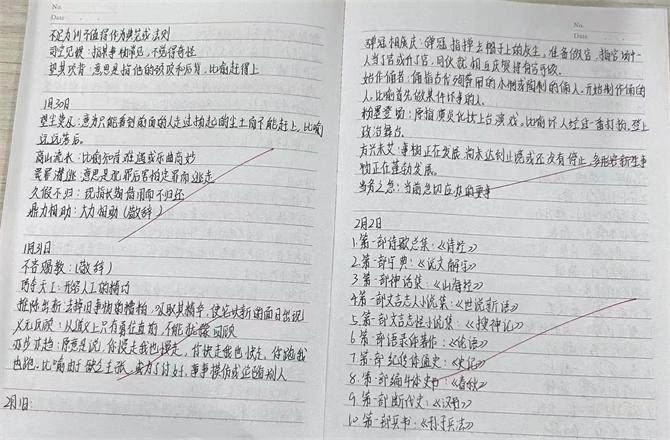 No.
Date
不足为训:不值得作为典范或法则
司空见惯:指某事物常见,不觉得奇怪
望其项背:意思是指他的颈项和后背,比喻赶得上
1月30日
望尘莫及:意为只能看到前面的人走过扬起的尘土而不能赶上,比喻
远远落后。
高山流水:比喻知音难遇或乐曲高妙
畏罪潜逃:意思是犯罪后害怕定罪而逃走
久假不归:现指长期借用而不归还
鼎力相助:大力相助(敬辞)
1月31日
不吝赐教:(敬辞)
巧夺天工:形容人工的精巧
推陈出新:去掉旧事物的糟粕,吸取其精华,使它以新的面目出现
义无反顾:从道义上只有勇往直前,不能犹豫回顾
亦步亦趋:原意是说,你慢走我也慢走,你快走我也快走,你跑我
也跑。比喻由于缺乏主张,或为了讨好,事事模仿或追随别人
2月1日:
No.
Date
弹冠相庆:弹冠指掸去帽子上的灰尘,准备做官。指官场中一
人当了官或升了官,同伙就相互庆贺将有官可做。
始作俑者:俑指古代殉葬用的木制或陶制的俑人,开始制作俑的
人,比喻首先做某件坏事的人。
粉墨登场:原指演员化妆上台演戏。比喻坏人经过一番打扮,登上
政治舞台。
方兴未艾:事物正在发展,尚未达到止境或还没有停止,多形容新生事
物正在蓬勃发展。
当务之急:当前急切应办的要事
2月2日
1.第一部诗歌总集:《诗经》
2.第一部字典:《说文解字》
3.第一部神话集:《山海经》
4.第一部文言志人小说集:《世说新语》
5.第一部文言志怪小说集:《搜神记》
6.第一部语录体著作:《论语》
7.第一部纪传体通史:《史记》
8.第一部编年体史书:《春秋》
9.第一部断代史:《汉书》
10.第一部兵书:《孙子兵法》